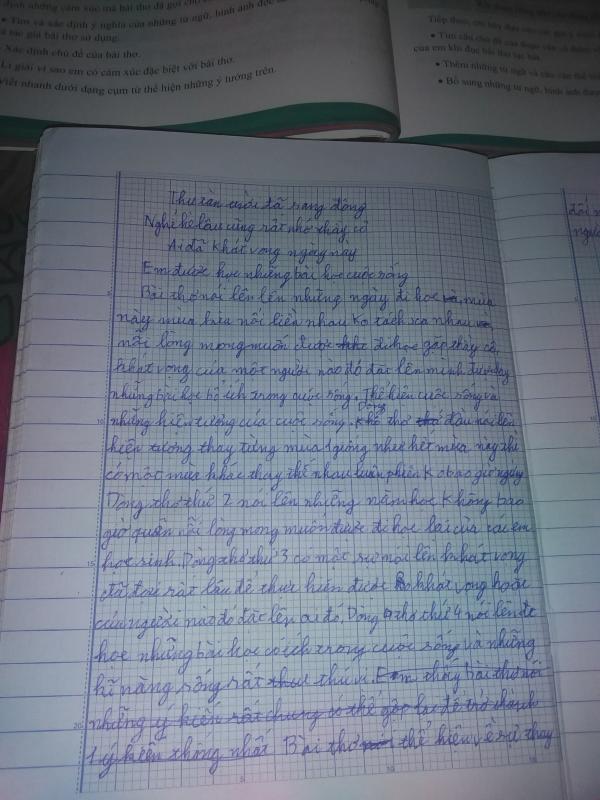 định những cảm xúc mà bài thơ đã gợi
• Tìm và xác định ý nghĩa của những từ ngữ, hình ảnh độc
tác giả bài thơ sử dụng.
Xác định chủ đề của bài thơ.
Lí giải vì sao em có cảm xúc đặc biệt với bài thơ.
Viết nhanh dưới dạng cụm từ thể hiện những ý tưởng trên.
Tiếp theo,
• Tìm câu chủ
của em khi đọc bài thơ
• Thêm những từ ngữ và
• Bổ sung những từ ngữ, hình ảnh
Thu tàn rồi đã sang đông
Nghỉ hè lâu cũng rất nhớ thầy cô
Ai đã khát vọng ngày nay
Em được học những bài học cuộc sống
Bài thơ nói lên lên những ngày đi học mùa
này mùa kia nối liền nhau ko tách xa nhau
nỗi lòng mong muốn được đi học gặp thầy cô,
khát vọng của một người nào đó đặt lên mình
những bài học bổ ích trong cuộc sống. Thể hiện cuộc sống và
những hiện tượng của cuộc sống. Dòng thơ đầu nói lên
hiện tượng thay từng mùa 1 giống như hết mùa này thì
có một mùa khác thay thế nhau luân phiên k bao giờ
Dòng thơ thứ 2 nói lên những năm học không bao
giờ quên nỗi lòng mong muốn được đi học lại của các em
học sinh. Dòng thơ thứ 3 có một sự nói lên khát vọng
đã đợi rất lâu để thực hiện được khát vọng hoặc
của người nào đó đặt lên ai đó. Dòng thơ thứ 4 nói lên đc
học những bài học có ích trong cuộc sống và những
kĩ năng sống rất thú vị. Em thấy bài thơ nói
những ý kiến rất chung có thể gộp lại để trở thành
1 ý kiến thống nhất Bài thơ thể hiện về sự thay